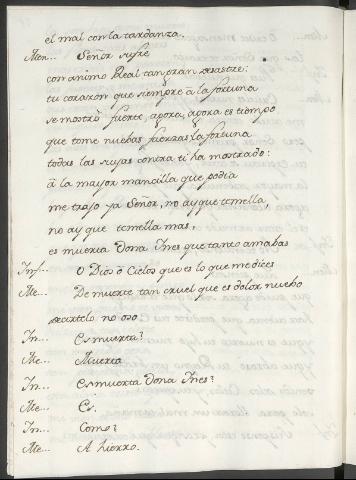 el mal con la tardanza.
Men... Señor sufre
con animo Real tan gran desastre:
tu corazon que siempre â la fortuna
se mostrò fuerte, agora, agora es tiempo
que tome nuebas fuerzas la fortuna
todas las suyas contra ti ha mostrado:
â la mayor mancilla que podia
me trajo ya Señor, no ay que temella,
no ay que temella mas,
es muerta Dona Ines que tanto amabas
Inf... O Dios ô Cielos que es lo que me dices
Me... De muerte tan cruel que es dolor nuebo
decirtelo no oso
In... Es muerta?
Me... Muerta
In... Es muerta Dona Ines?
Me... Es.
In... Como?
Me... A hierro.